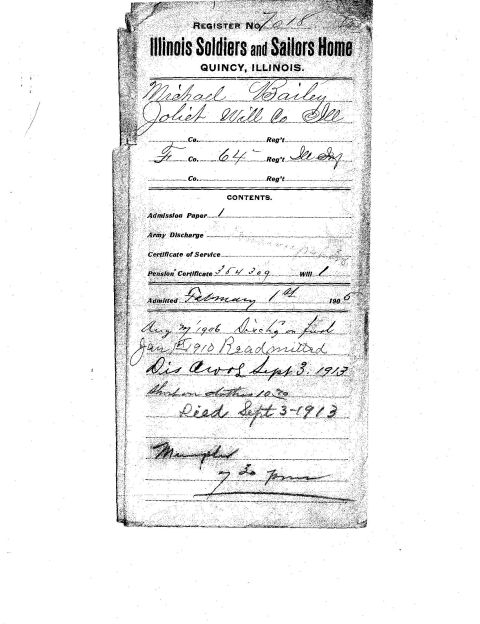 REGISTER No. 7018
Illinois Soldiers and Sailors Home
QUINCY, ILLINOIS.
Michael Bailey
Joliet Will Co Ill
Co. Reg't
F Co. 64 Reg't Ill Inf
Co. Reg't
CONTENTS.
Admission Paper 1
Army Discharge
Certificate of Service
Pension Certificate 364309 Will 1
Admitted February 1st 1906
Aug 1906 Disch'g on
Jan 1910 Readmitted
Dis Awol Sept 3. 1913
Short on clothes 10.70
Died Sept 3-1913
7